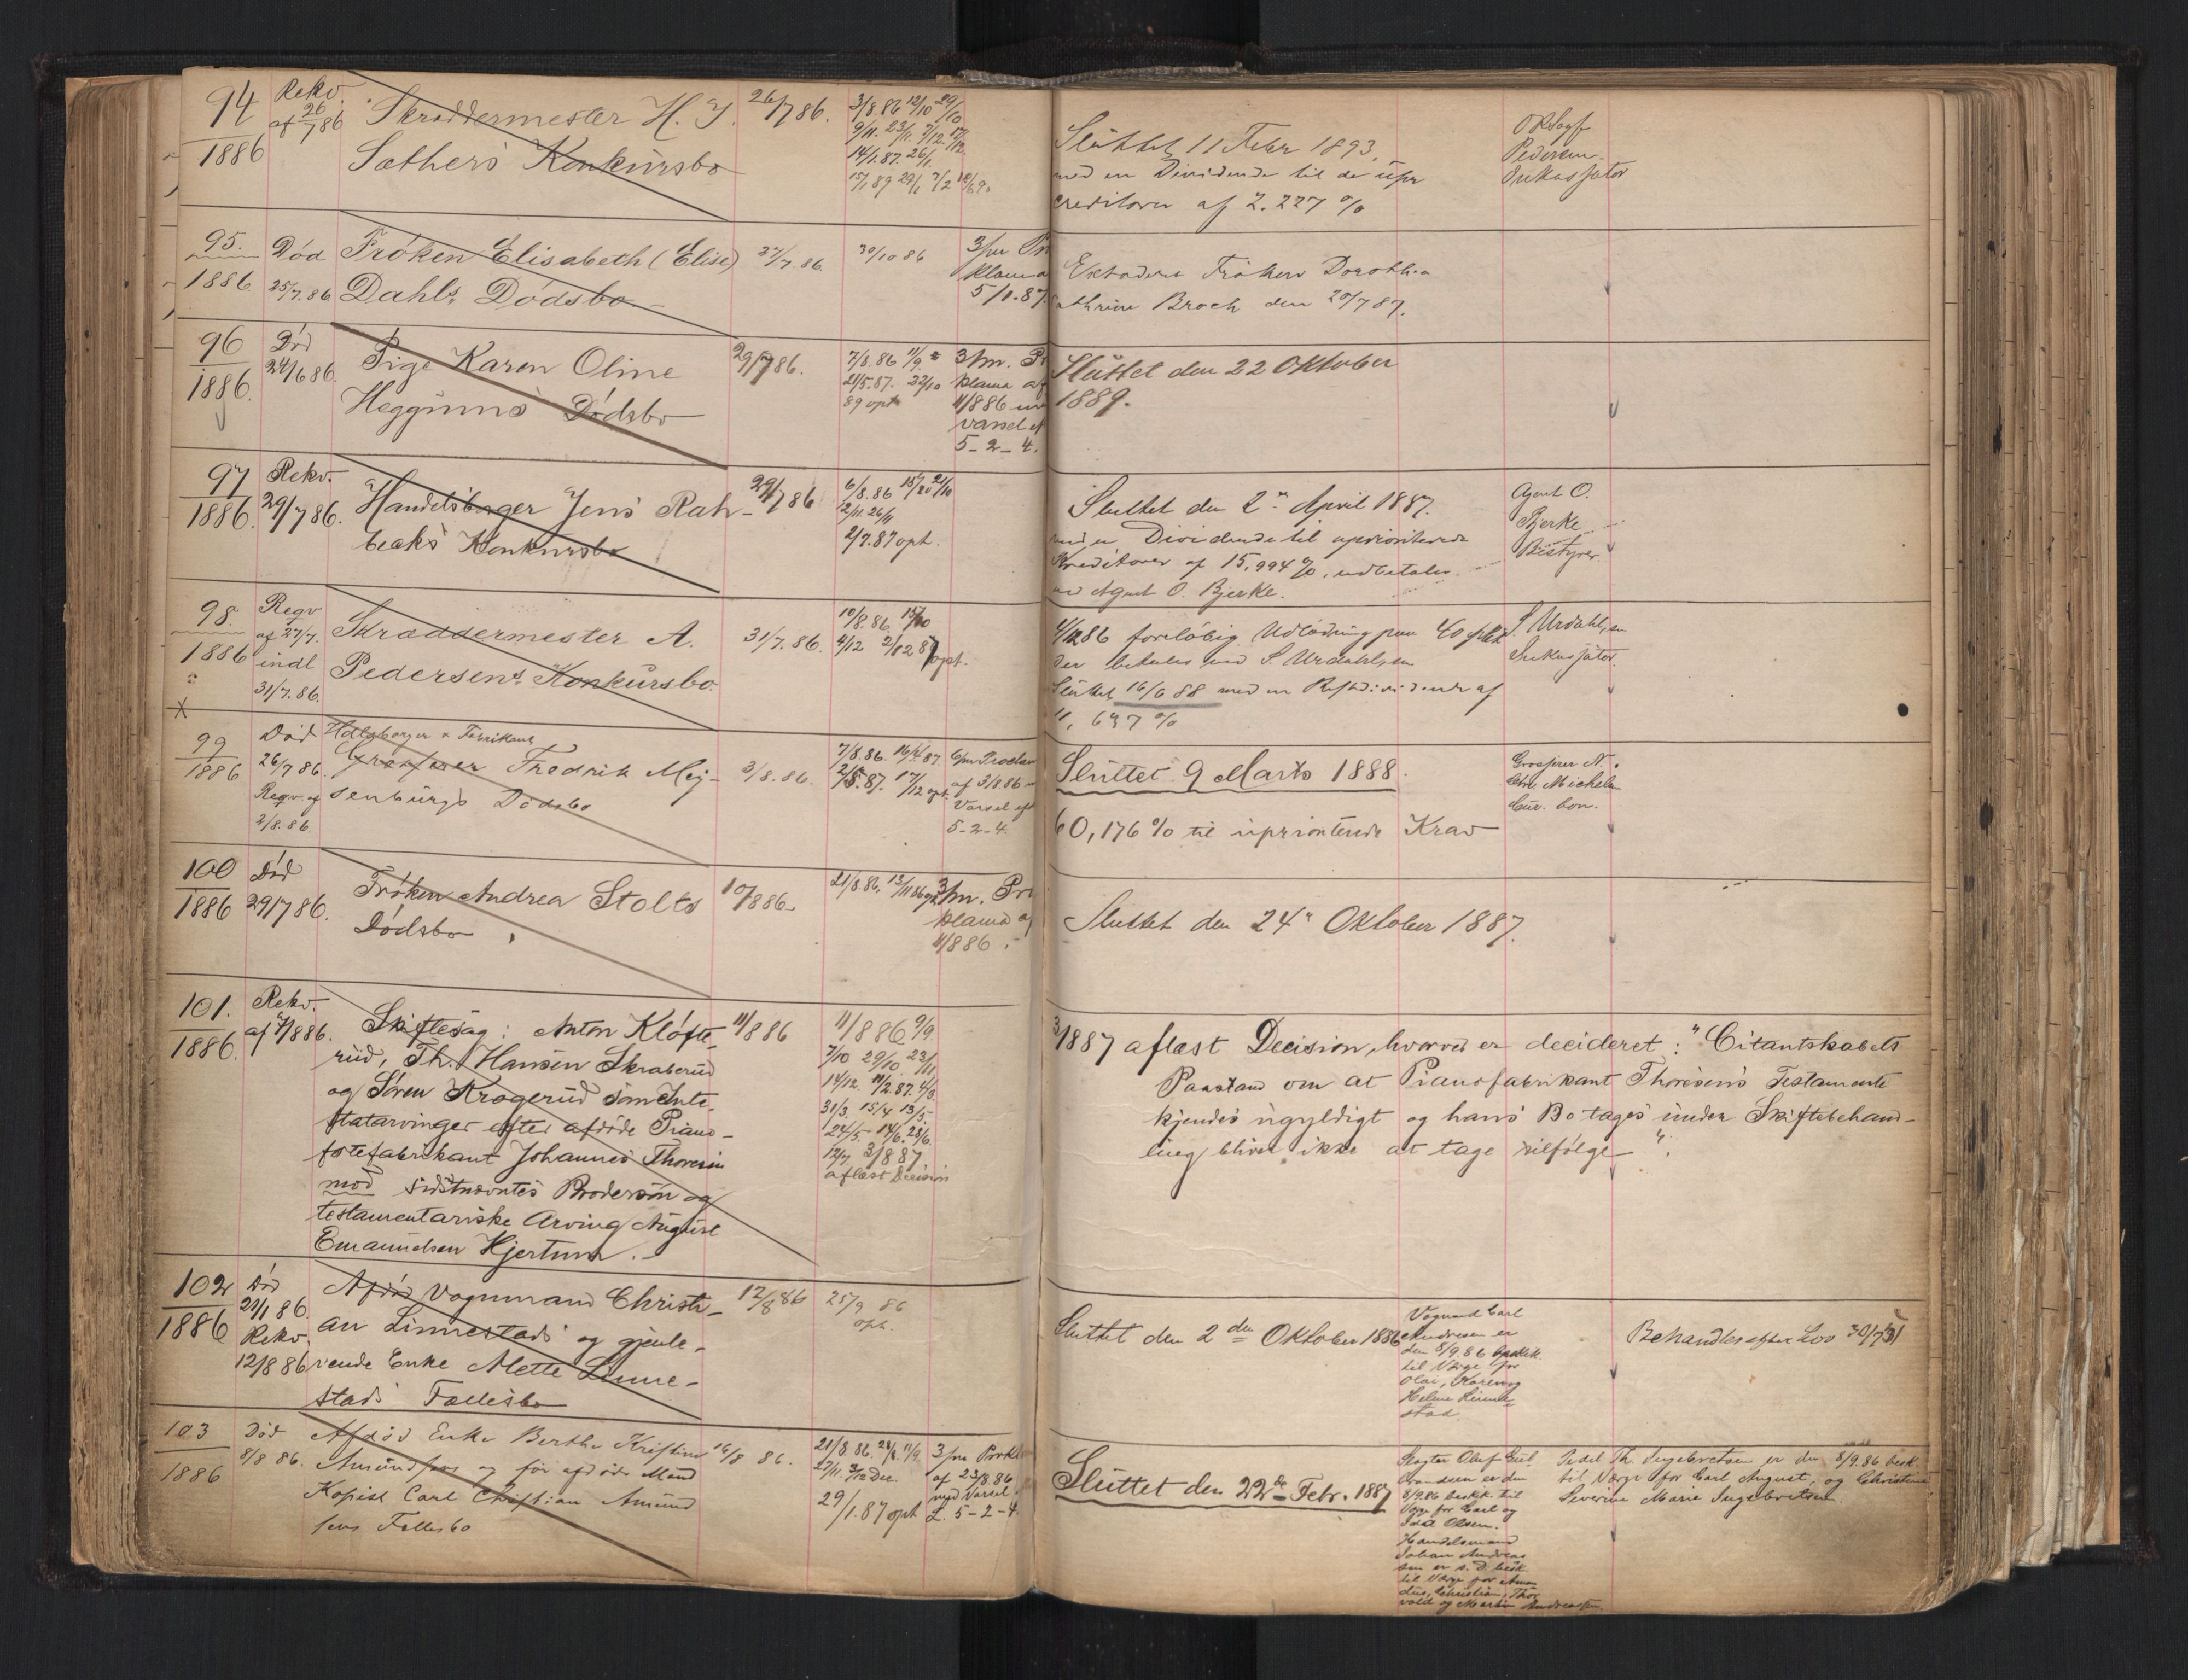 94
1886
Rekv.
af 26/7 86
Skræddermester H. J.
Sæthers Konkursbo
26/7 86.
3/8.86 12/10 29/10
9/11. 23/11. 7/12.
14/1.87. 26/1.
15/1 89 29/1 7/2
Sluttet 11 Febr 1893,
med en Dividende til de upr
creditorer af 2.227 %
Pedersen
Inkassator
95.
1886
Død
25/7.86
Frøken Elisabeth (Elise)
Dahls Dødsbo
27/7.86.
30/10 86
3/m Pro
klama
5/1.87.
Extraderet Frøken Dorothea
Cathrine Broch den 20/7 87.
96
1886
Død
24/6 86.
Pige Karen Oline
Heggums Dødsbo
29/7 86.
7/8.86 11/9
21/5.87. 22/10
89 opt
3/m. Pr
klama af
11/8 86 m
varsel ef
5-2-4.
Sluttet den 22 Oktober
1889.
97
1886.
Rekv.
29/7 86.
Handelsborger Jens Rah-
beck's Konkursbo
29/7 86
6/8.86 21/10
12/11 26/11
2/7.87 opt.
Sluttet den 2n April 1887.
med en Dividende til uprioriterede
Kreditorer af 15,994 %, udbetales
ved Agent O. Bjerke.
Agent O.
Bjerke
Bestyrer
98.
1886
Reqv
af 27/7.
indl
31/7.86.
Skræddermester A.
Pedersens Konkursbo.
31/7.86.
10/8.86 15/10
4/12 2/12 87 opt.
4/12 86 foreløbig Udlodning paa 40 pct
der betales ved S. Urdahl, sen
Sluttet 16/6 88 med en Restdividende af
11,697 %
S. Urdahl, sen
Inkassator
X
99
1886
Død
26/7 86.
Reqv. af
2/8.86.
Hdlsborger & Fabrikant
Grosserer Fredrik Mej-
senburgs Dødsbo
3/8.86.
7/8.86. 16/4 87.
2/5.87. 17/12 opt.
6/m Proclam
af 3/8 86
Varsel eft
5-2-4.
Sluttet 9 Marts 1888.
60,176 % til uprioriterede Krav
Grosserer N.
Chr. Michelsen
Cur. bon.
100
1886
Død
29/7 86.
Frøken Andrea Stoltz
Dødsbo
10/8 86.
21/8.86. 13/11 86 opt
3/m. Pro
klama af
11/8 86.
Sluttet den 24n Oktober 1887.
101.
1886.
Rekv.
af 7/8 86.
Skiftesag: Anton Kløfte-
rud, Th. Hansen Skraberud
og Søren Krogerud som Inte-
statarvinger efter afdøde Piano-
fortefabrikant Johannes Thoresen
mod sidstnævntes Brodersøn og
testamentariske Arving August
Emanuelsen Hjertum.
11/8 86
11/8 86 9/9.
7/10 29/10. 23/11
14/12. 11/2.87. 4/3.
31/3. 15/4 13/5.
24/5 14/6. 28/6
12/7. 3/8 87
aflæst Decision
3/8 87 aflæst Decision, hvorved er decideret: "Citantskabets
Paastand om at Pianofabrikant Thoresen's Testamente
kjendes ugyldigt og hans Bo tages under Skiftebehand-
ling bliver ikke at tage tilfølge".
102
1886
Død
29/1 86
Rekv.
12/8 86
Afdøde Vognmand Christi-
an Linnestads og gjenle-
vende Enke Mette Linne-
stads Fællesbo
12/8 86
25/9 86
opt.
Sluttet den 2den Oktober 1886
Vognmd Carl
Andresen er
den 8/9.86 beskik.
til Værge for
Olai, Karen og
Helene Linne-
stad.
Behandles efter Lov 30/7 51
103
1886
Død
8/8 86.
Afdød Enke Berthe Kristine
Amundsens og før afdøde Mand
Kopist Carl Christian Amund
sens Fællesbo
16/8 86.
21/8 86. 28/8. 11/9.
27/11. 9/12 Dec.
29/1.87 opt
3/m Prokl
af 23/8.86
med Varsel
L. 5-2-4.
Sluttet den 22de Febr. 1887
Slagter Oluf Gul-
brandsen er den
8/9.86 beskik. til
Værge for Carl og
Ida Olsen.
Handelsmand
Johan Andreas
sen er s. D. besk.
til Værge for Aman
dus, Christian, Thor
vald og Martin Andreassen.
Pedel Th. Ingebretsen er den 8/9.86 besk.
til Værge for Carl August, og Christine
Severine Marie Ingebretsen